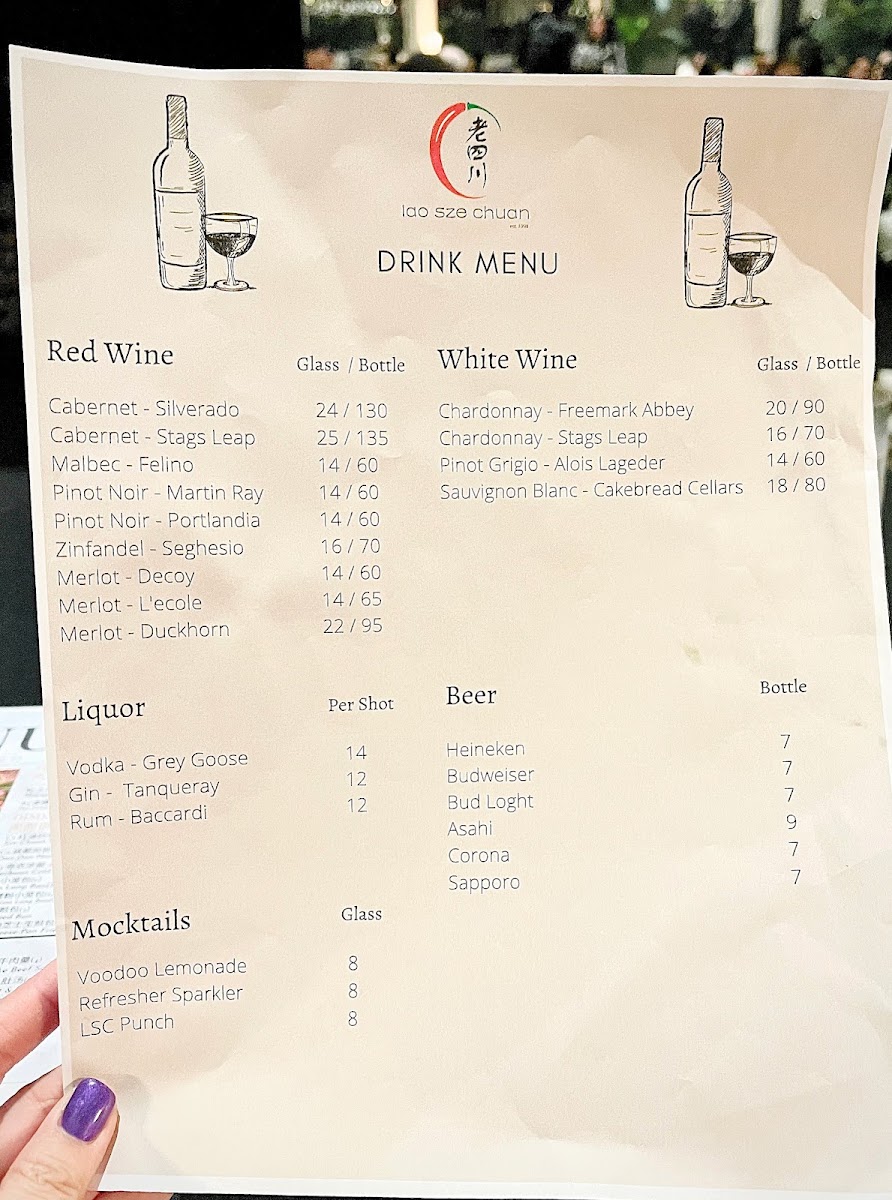 老四川
lao sze chuan
DRINK MENU
Red Wine
Glass / Bottle
Cabernet - Silverado 24 / 130
Cabernet - Stags Leap 25 / 135
Malbec - Felino 14 / 60
Pinot Noir - Martin Ray 14 / 60
Pinot Noir - Portlandia 14 / 60
Zinfandel - Seghesio 16 / 70
Merlot - Decoy 14 / 60
Merlot - L'ecole 14 / 65
Merlot - Duckhorn 22 / 95
White Wine
Glass / Bottle
Chardonnay - Freemark Abbey 20 / 90
Chardonnay - Stags Leap 16 / 70
Pinot Grigio - Alois Lageder 14 / 60
Sauvignon Blanc - Cakebread Cellars 18 / 80
Liquor
Per Shot
Vodka - Grey Goose 14
Gin - Tanqueray 12
Rum - Baccardi 12
Beer
Bottle
Heineken 7
Budweiser 7
Bud Loght 7
Asahi 9
Corona 7
Sapporo 7
Mocktails
Glass
Voodoo Lemonade 8
Refresher Sparkler 8
LSC Punch 8